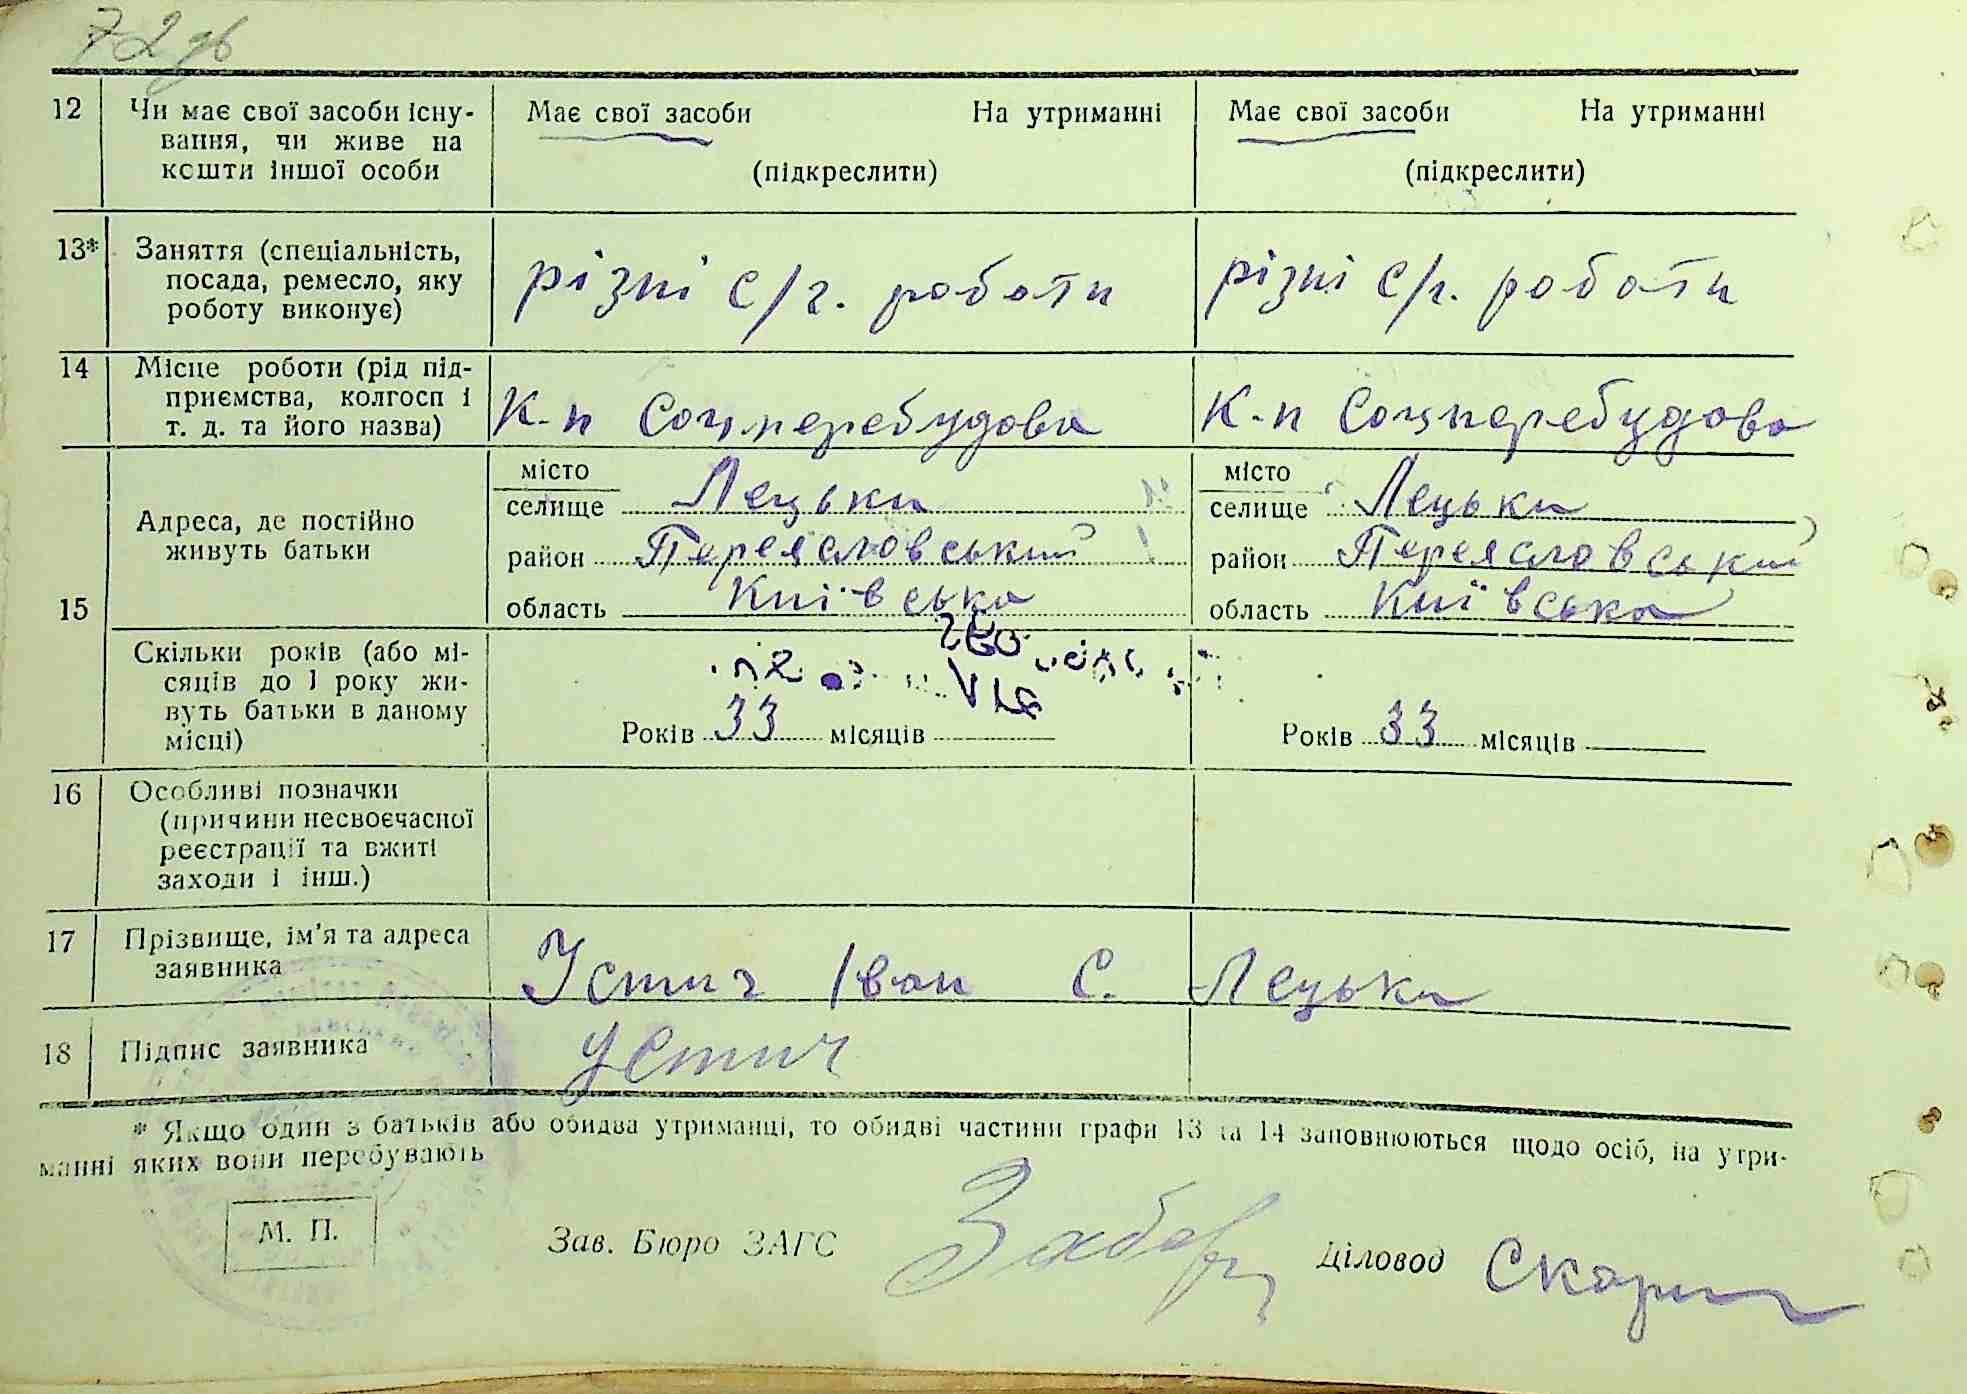 72 зв
12 Чи має свої засоби існу-
вання, чи живе на
кошти іншої особи
Має свої засоби На утриманні
(підкреслити)
Має свої засоби На утриманні
(підкреслити)
13* Заняття (спеціальність,
посада, ремесло, яку
роботу виконує)
різні с/г. роботи
різні с/г. роботи
14 Місце роботи (рід під-
приємства, колгосп і
т. д. та його назва)
К-п Соцперебудова
К-п Соцперебудова
15
Адреса, де постійно
живуть батьки
місто
селище Лецьки
район Переяславський
область Київська
місто
селище Лецьки
район Переяславський
область Київська
Скільки років (або мі-
сяців до 1 року жи-
вуть батьки в даному
місці)
Років 33 місяців
Років 33 місяців
16 Особливі позначки
(причини несвоєчасної
реєстрації та вжиті
заходи і інш.)
17 Прізвище, ім'я та адреса
заявника
Устич Іван С. Лецьки
18 Підпис заявника
Устич
* Якщо один з батьків або обидва утриманці, то обидві частини графи 13 та 14 заповнюються щодо осіб, на утри-
манні яких вони перебувають
М. П.
Зав. Бюро ЗАГС
Діловод